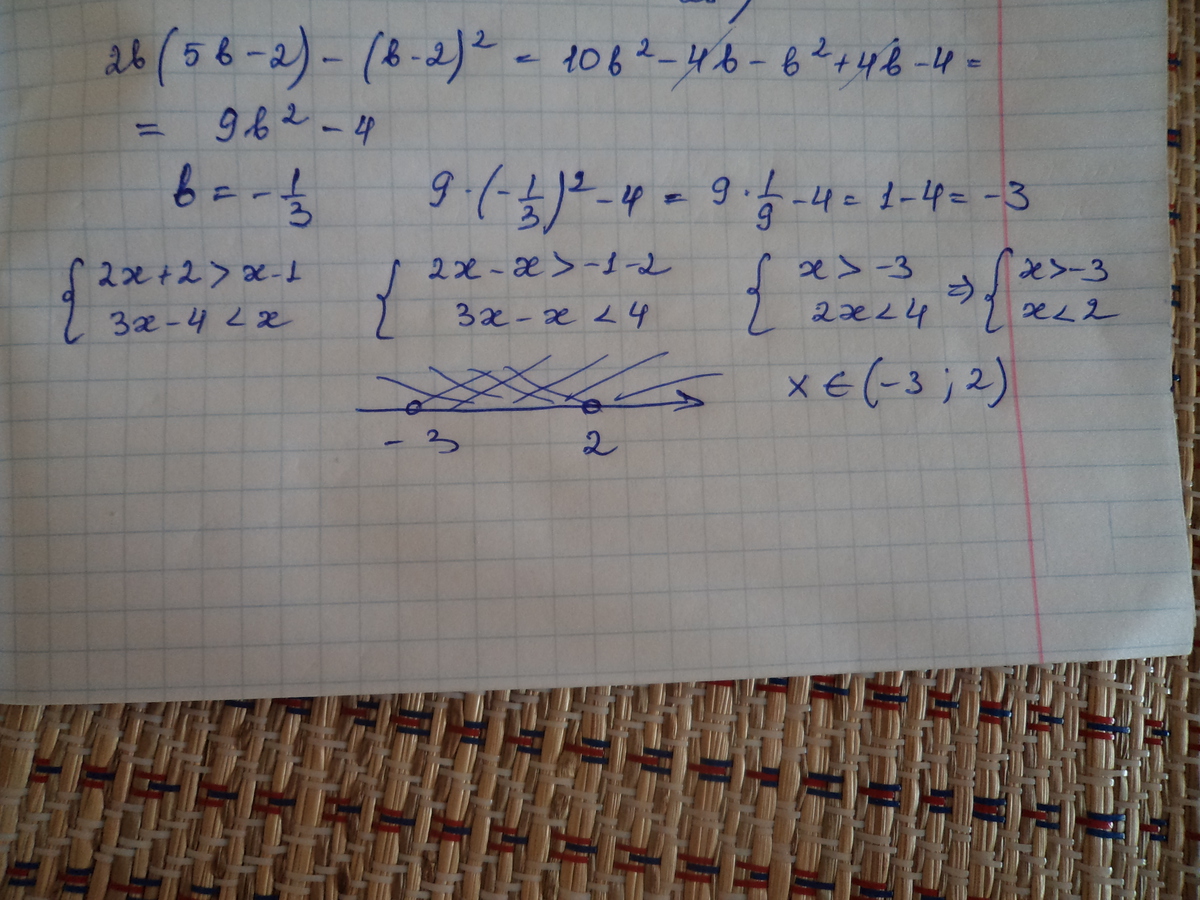 2b(5b-2)-(b-2)² = 10b²-4b-b²+4b-4=
= 9b²-4
b = -1/3 9·(-1/3)²-4 = 9·1/9-4 = 1-4 = -3
{ 2x+2>x-1 { 2x-x>-1-2 { x>-3 ⇒ { x>-3
3x-4<x 3x-x<4 2x<4 x<2
x∈(-3;2)
-3 2